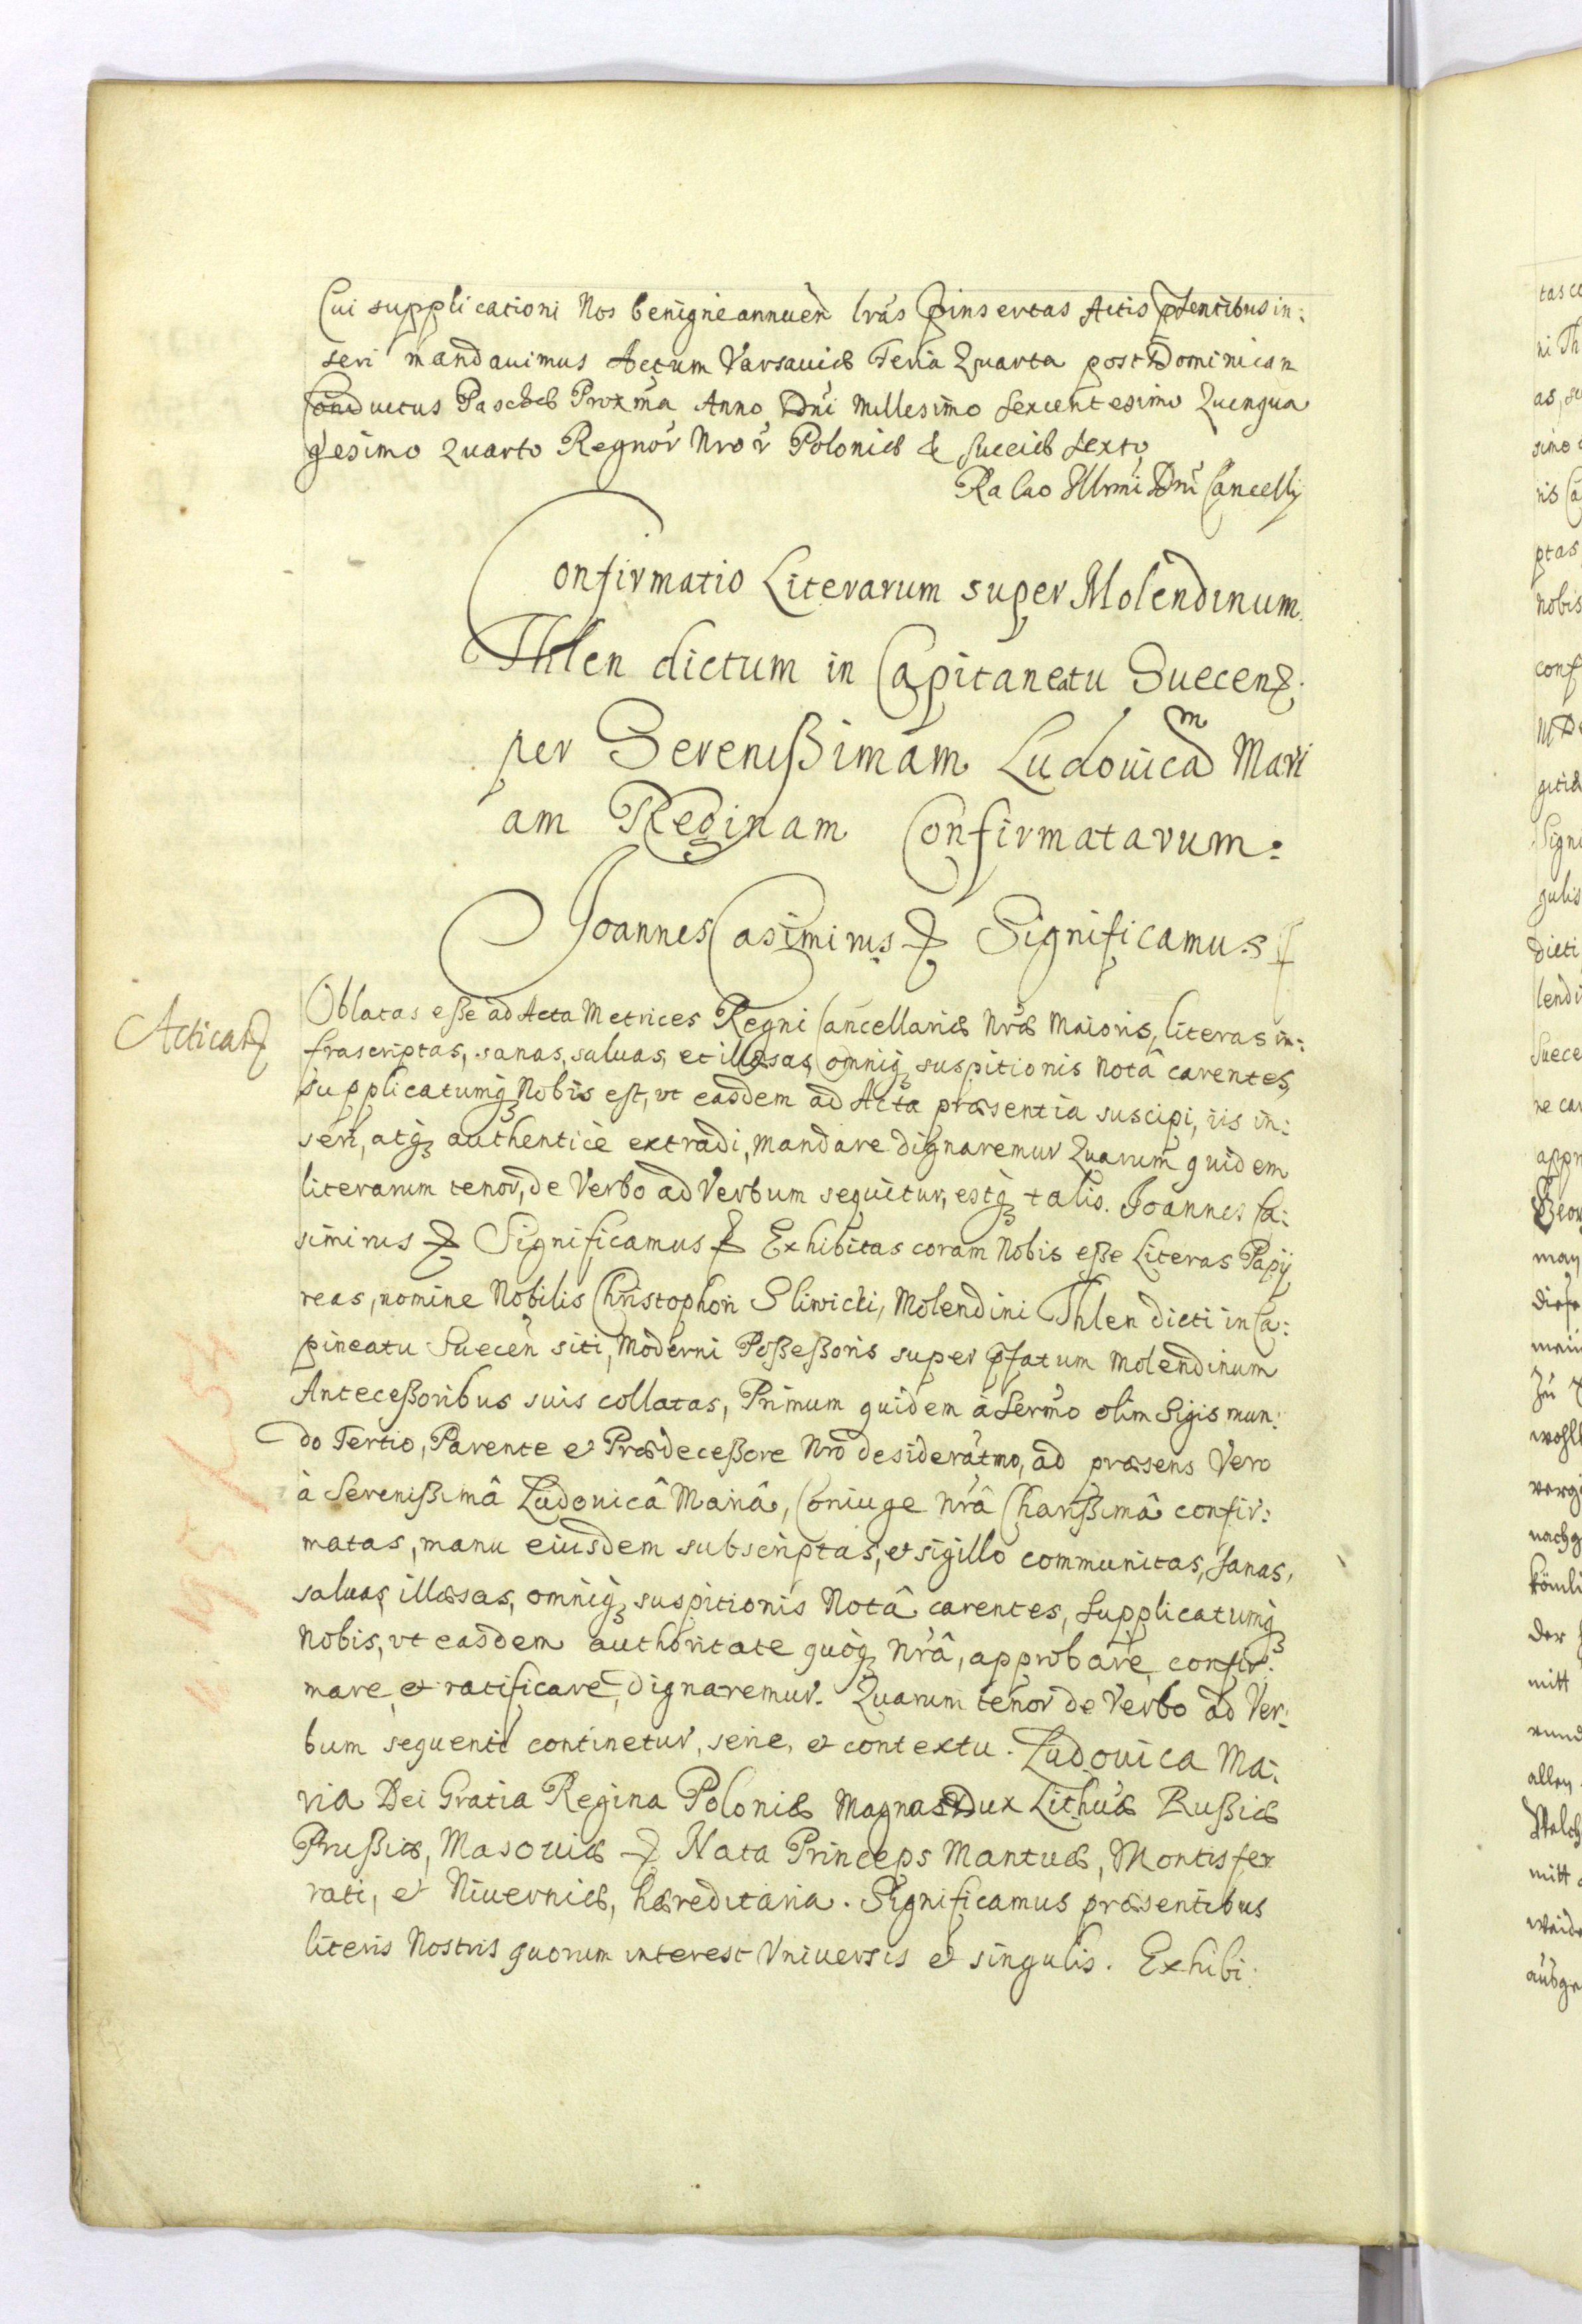 Cui supplicationi Nos benignè annuen̄ lrās p̄insertas Actis p̄sentibus in:
seri mandauimus Actum Varsauiæ Feria Quarta post Dominicam
Conductus Paschæ Prox̄ma Anno Dn̄i Millesimo Sexcentesimo Quinqua
gesimo Quarto Regnor̄ Nror̄ Poloniæ & Sueciæ Sexto
Ralao Illrmi Dn̄i Cancellÿ
Confirmatio Literarum super Molendinum
Thlen dictum in Capitaneatu Suecenȝ.
per Serenißimam Ludouicam Mari
am Reginam Confirmatarum:
Joannes Casimirus ꝛ Significamus ꝛ
Acticatȝ
Oblatas eße ad Acta Metrices Regni Cancellariæ Nrǣ Maioris, literas in:
frascriptas, sanas, saluas, et illæsas, omniqȝ suspitionis notâ carentes,
supplicatumqȝ Nobis est, vt easdem ad Acta præsentia suscipi, iis in:
seri, atqȝ authenticè extradi, mandare dignaremur Quarum quidem
literarum tenor, de Verbo ad Verbum sequitur, estqȝ talis. Joannes Ca:
simirus ꝛ Significamus ꝛ Exhibitas coram Nobis eße Literas Papÿ
reas, nomine Nobilis Christophori Sliwicki, Molendini Thlen dicti in Ca:
pineatu Suecen̄ siti, Moderni Poßeßoris super p̄fatum Molendinum
Anteceßoribus suis collatas, Primum quidem à Serm̄o olim Sigismun:
do Tertio, Parente et Prædeceßore Nrō desideratmo, ad præsens Vero
à Serenißimâ Ludouicâ Mariâ, Coniuge Nrâ Charißimâ confir:
matas, manu eiusdem subscriptas, et sigillo communitas, sanas,
saluas, illæsas, omniqȝ suspitionis Notâ carentes, supplicatumqȝ
Nobis, vt easdem authoritate quoqȝ Nrâ, approbare confir:
mare, et ratificare, dignaremur. Quarum tenor de Verbo ad Ver:
bum sequenti continetur, serie, et contextu. Ludouica Ma:
ria Dei Gratia Regina Poloniæ Magna Dux Lithuæ Rußiæ
Prußiæ, Masouiæ ꝛ Nata Princeps Mantuæ, Montisfer
rati, et Niuerniæ, hæreditaria. Significamus præsentibus
literis Nostris quorum interest Vniuersis et singulis. Exhibi: